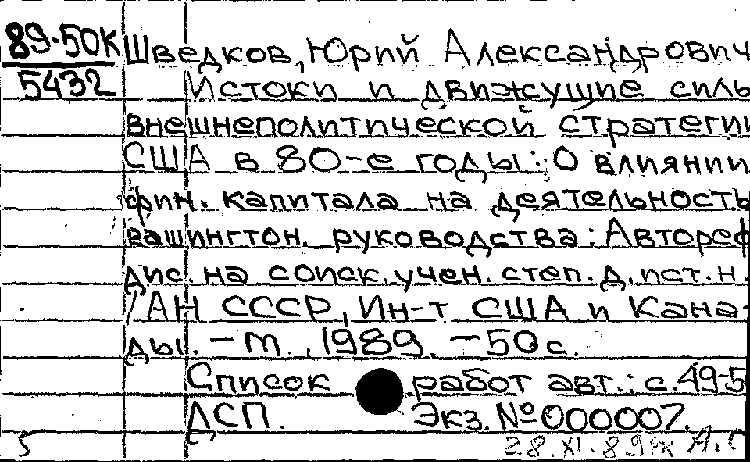 89-50К
5432
Шведков, Юрий Александрович
Истоки и движущие силы
внешнеполитической стратегии
США в 80-е годы: О влиянии
фин. капитала на деятельность
вашингтон. руководства: Автореф
дис. на соиск. учен. степ. д. ист. н.
/АН СССР, Ин-т США и Кана-
ды. - М., 1989. - 50 с.
Список работ авт.: с. 49-5
ДСП. Экз. № 000007.
5 28.XI.89